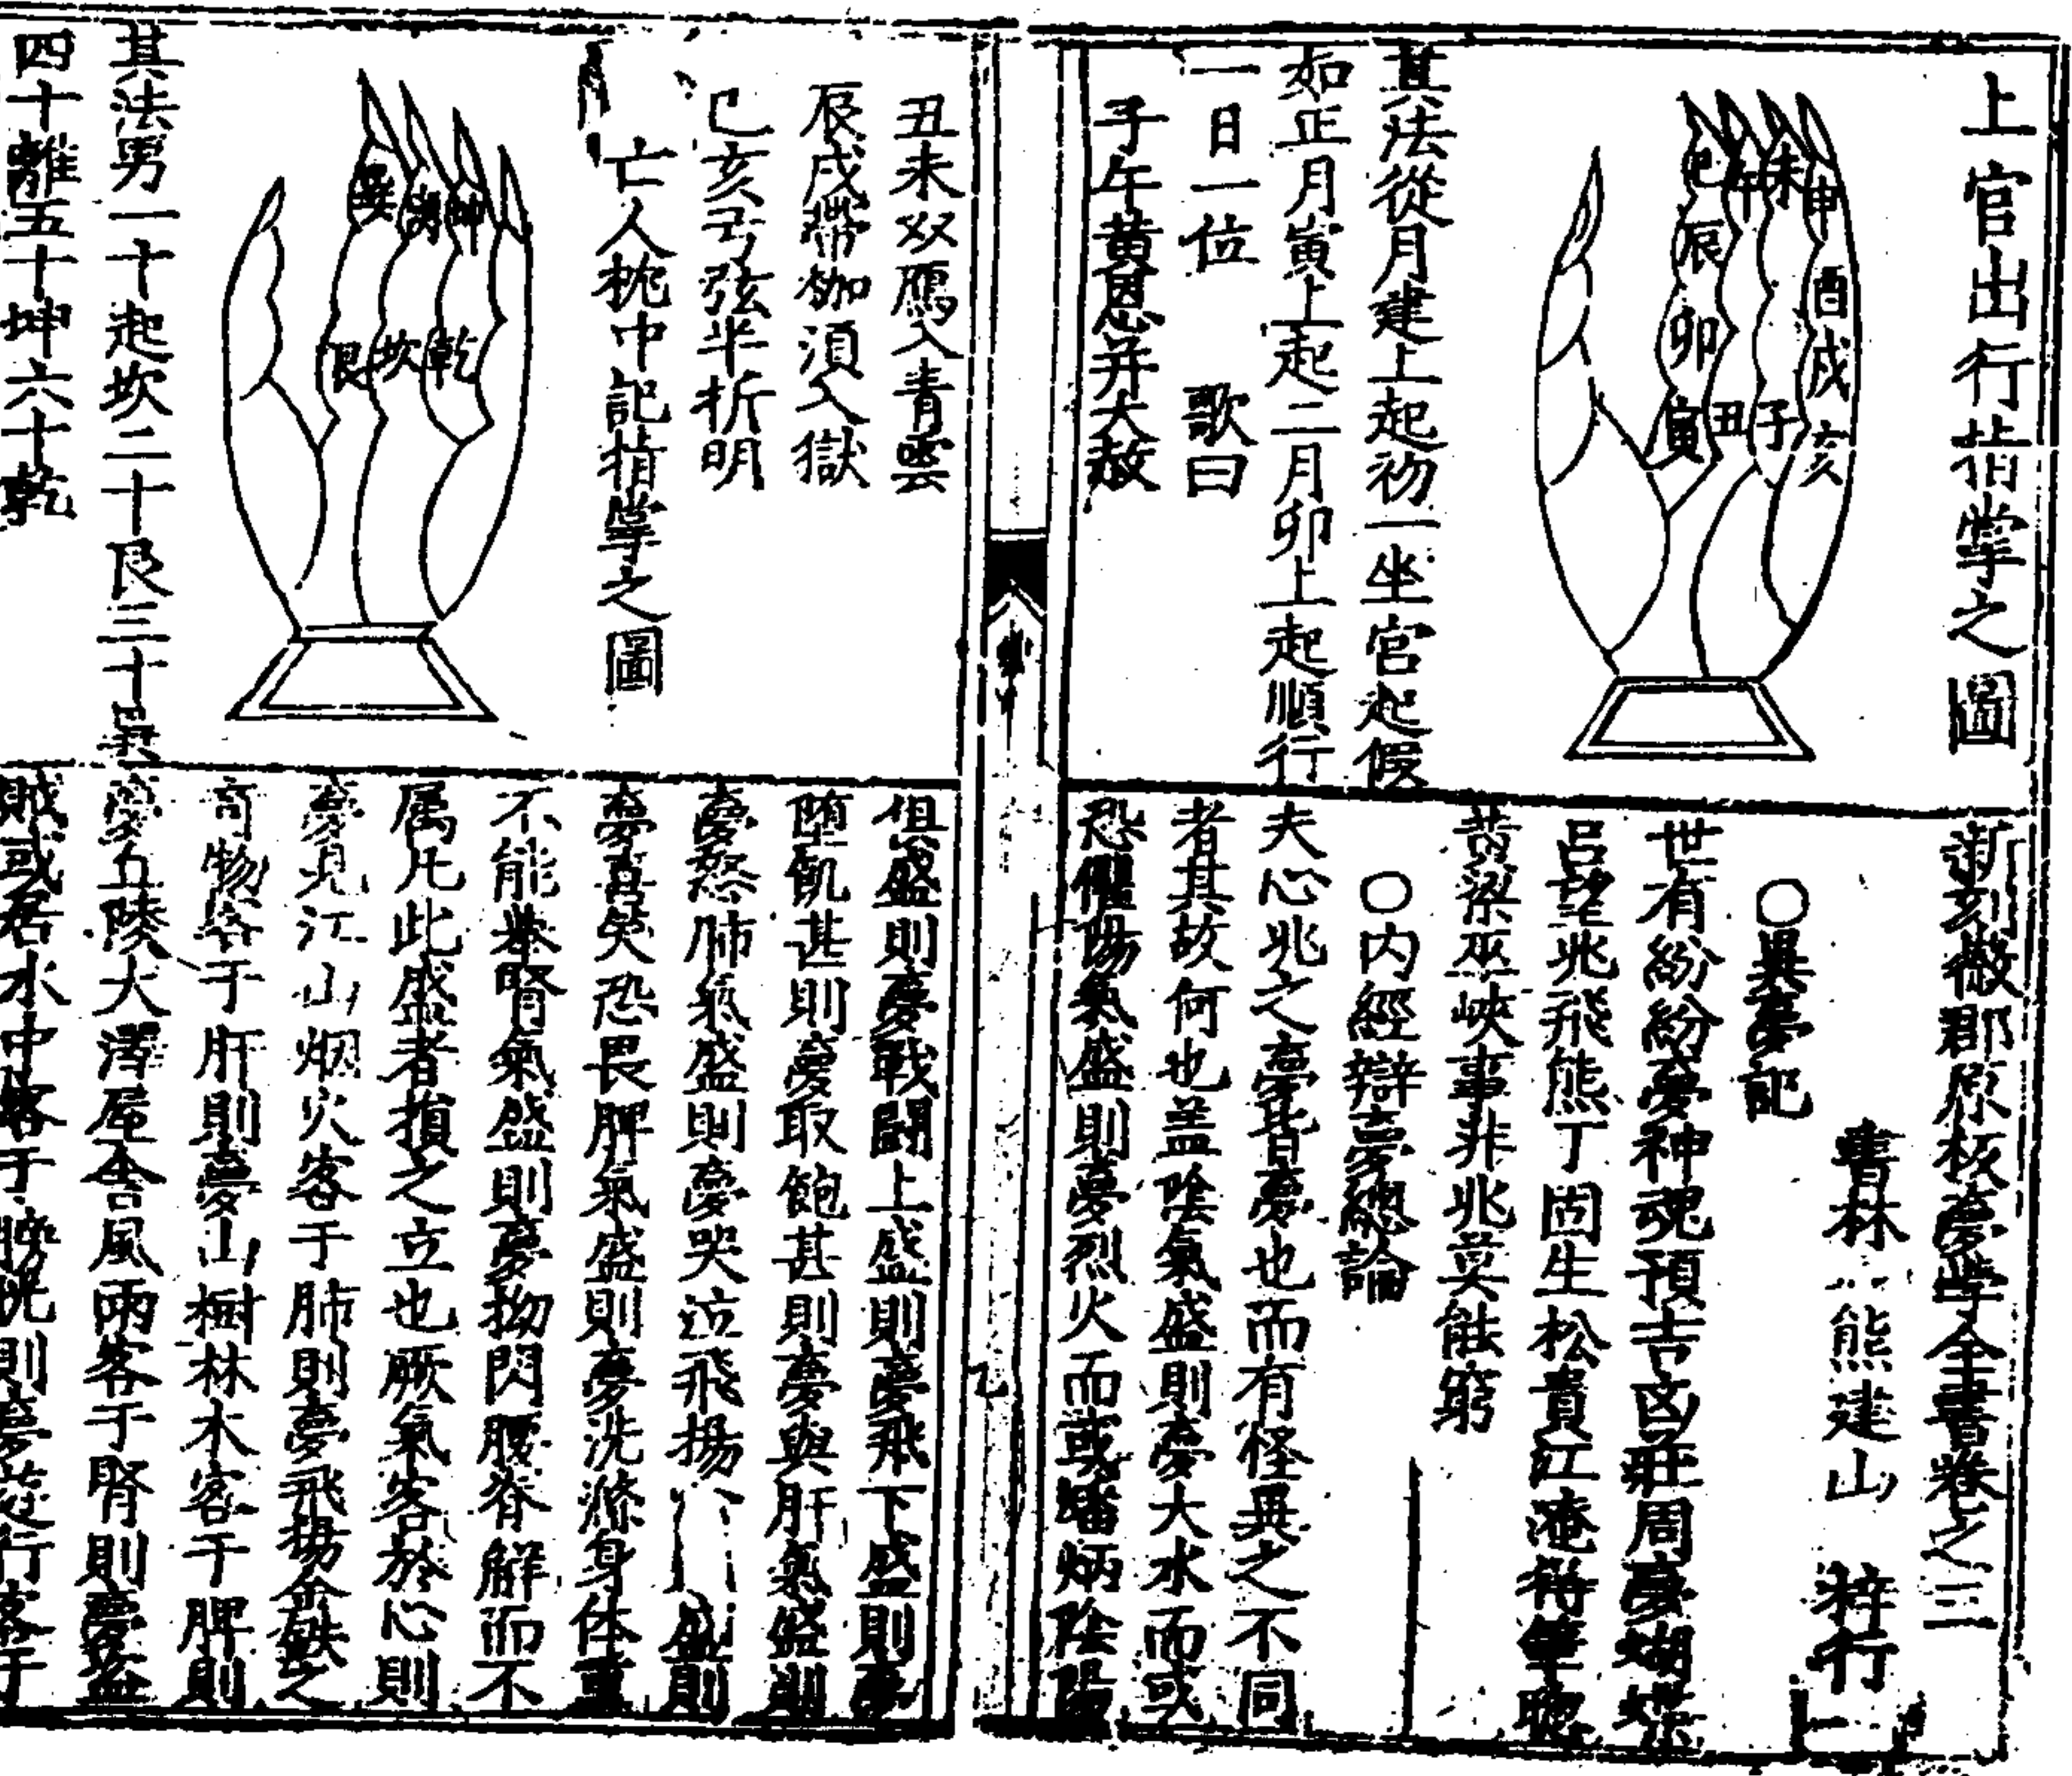 上官出行指掌之圖
巳
午
未
申
辰
酉
卯
戌
寅
丑
子
亥
其法從月建上起初一坐官起假
如正月寅上起二月卯上起順行
一日一位 歌曰
子午黄恩并大赦
丑未双鴈入青雲
辰戌帶枷須入獄
巳亥弓弦半折明
亡人枕中記指掌之圖
巽
离
坤
艮
坎
乾
其法男一十起坎二十艮三十巽
四十離五十坤六十乾
新刻徽郡原板夢學全書卷之三
書林 熊建山 梓行
○異夢記
世有紛紛夢神魂預吉凶莊周夢蝴蝶
呂望兆飛熊丁固生松貴江淹得筆聰
黄梁巫峽事非兆莫能窮
○内經辯夢總論
夫心兆之夢皆夢也而有怪異之不同
者其故何也盖陰氣盛則夢大水而或
恐懼陽氣盛則夢烈火而或燔炳陰陽
俱盛則夢戰鬪上盛則夢飛下盛則夢
堕飢甚則夢取飽甚則夢與肝氣盛則
夢怒肺氣盛則夢哭泣飛揚 盛則
夢喜笑恐畏脾氣盛則夢洗滌身体重
不能举腎氣盛則夢拗閃腰脊解而不
属凡此盛者損之立也厥氣客於心則
夢見江山烟火客于肺則夢飛揚金鉄之
奇物客于肝則夢山樹林木客于脾則
夢丘陵大澤屋舍風雨客于腎則夢
賊或居水中客于膀胱則夢遊行客于